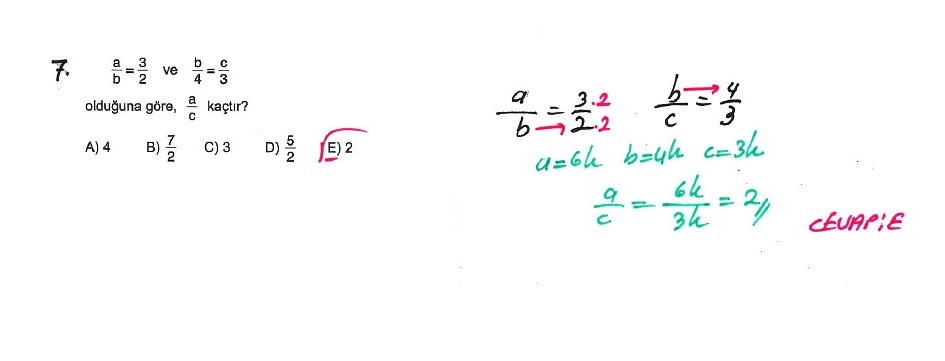 7. a/b = 3/2 ve b/4 = c/3
olduğuna göre, a/c kaçtır?
A) 4 B) 7/2 C) 3 D) 5/2 E) 2
a/b = 3.2/2.2 b/c = 4/3
a=6k b=4k c=3k
a/c = 6k/3k = 2//
CEVAP:E